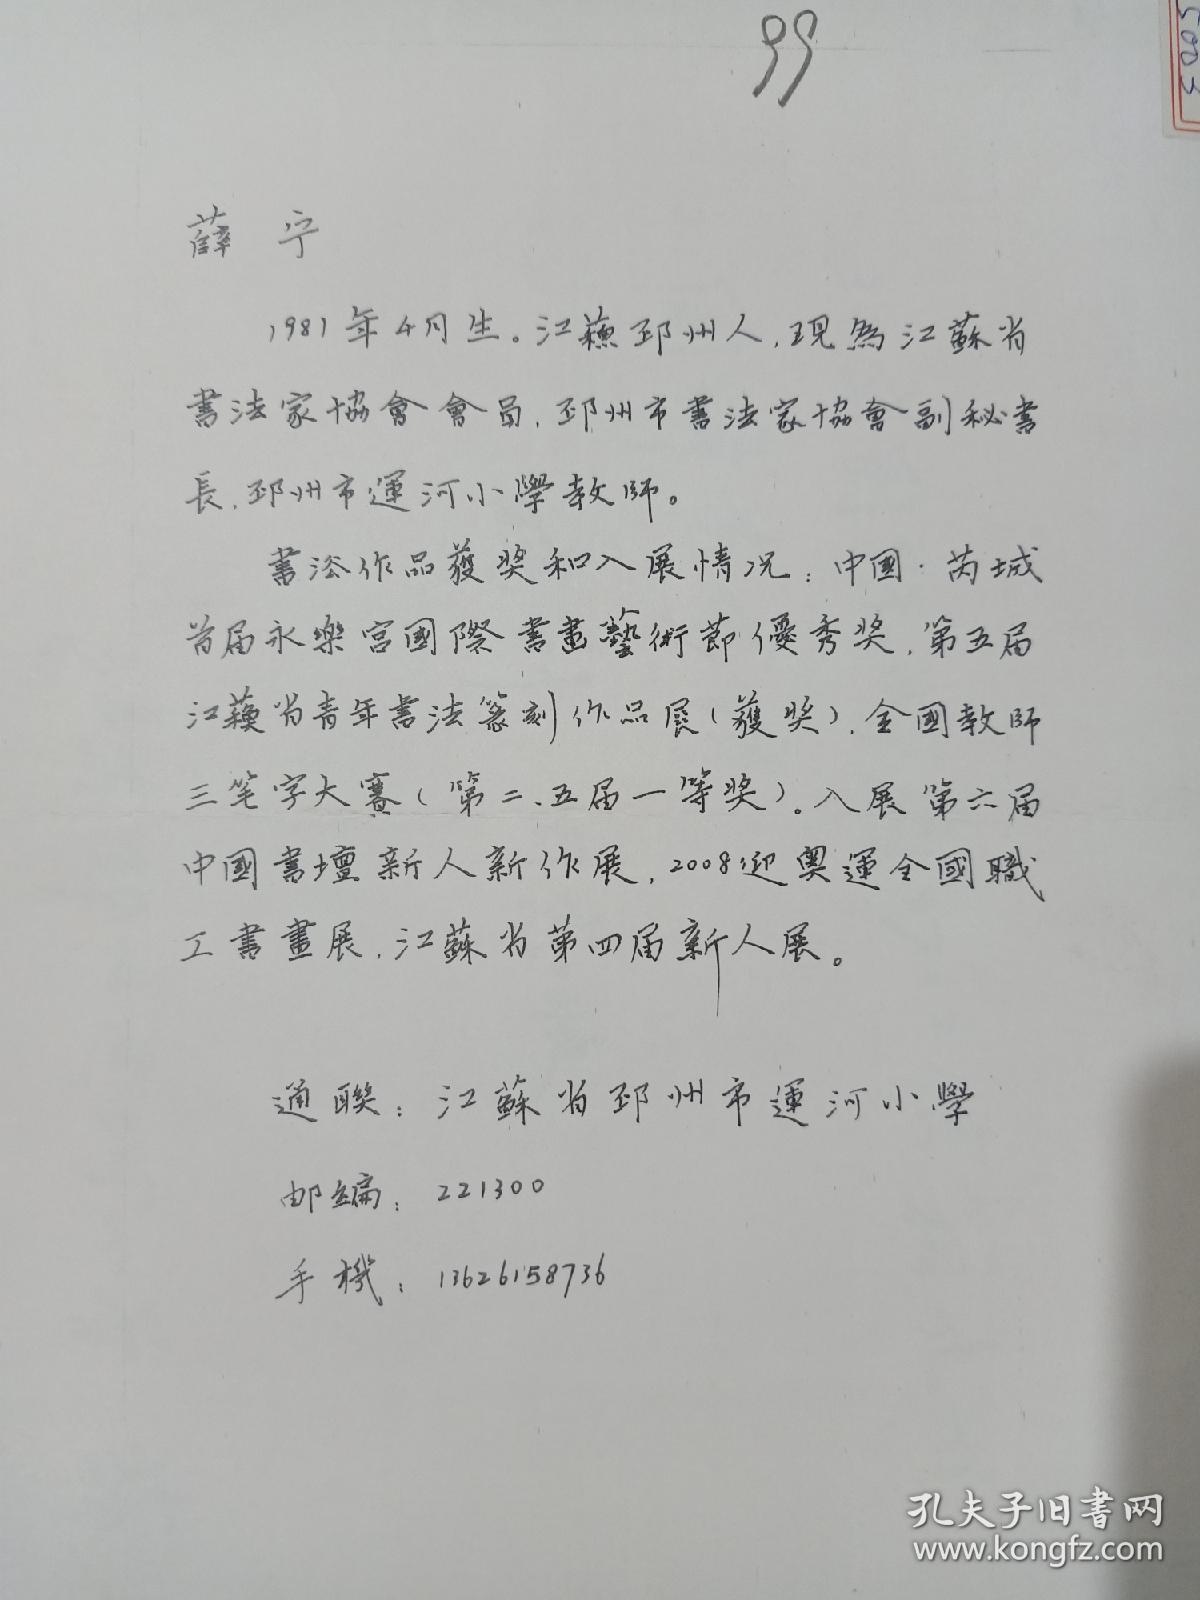 99
5003
薛 宁
1981年4月生。江蘇邳州人,現為江蘇省
書法家協會會員,邳州市書法家協會副秘書
長,邳州市運河小學教師。
書法作品獲奖和入展情况:中國·芮城
首届永樂宫國際書畫藝術節優秀奖,第五届
江蘇省青年書法篆刻作品展(獲奖),全國教師
三笔字大賽(第二、五届一等奖)。入展第六届
中國書壇新人新作展,2008迎奥運全國職
工書畫展,江蘇省第四届新人展。
通聯:江蘇省邳州市運河小學
邮编:221300
手機:13626158736
孔夫子旧书网
www.kongfz.com